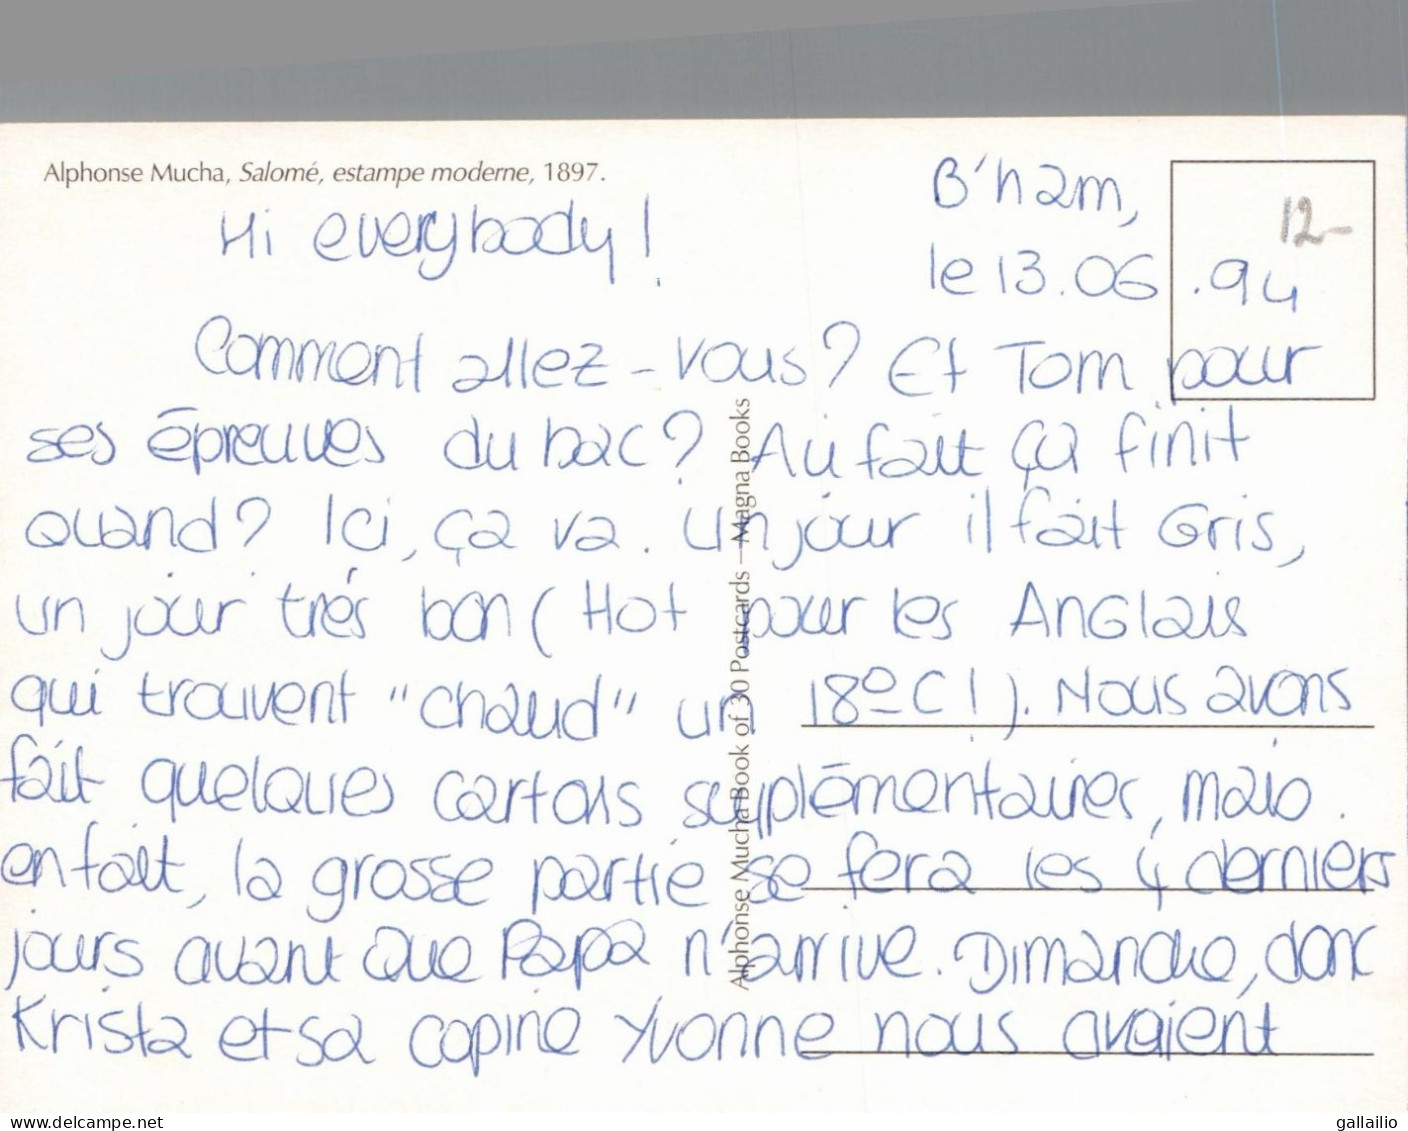 Alphonse Mucha, Salomé, estampe moderne, 1897.
B'ham,
12-
Hi everybody!
le 13.06.94
Comment allez-vous? Et Tom pour
ses épreuves du bac? Au fait ça finit
quand? Ici, ça va. Un jour il fait Gris,
un jour très bon (Hot pour les Anglais
qui trouvent "chaud" un 18°C!). Nous avons
fait quelques cartons supplémentaires, mais
en fait, la grosse partie se fera les 4 derniers
jours avant que Papa n'arrive. Dimanche, donc
Krista et sa copine Yvonne nous avaient
Alphonse Mucha Book of 30 Postcards — Magna Books
delcampe.net
gallailio